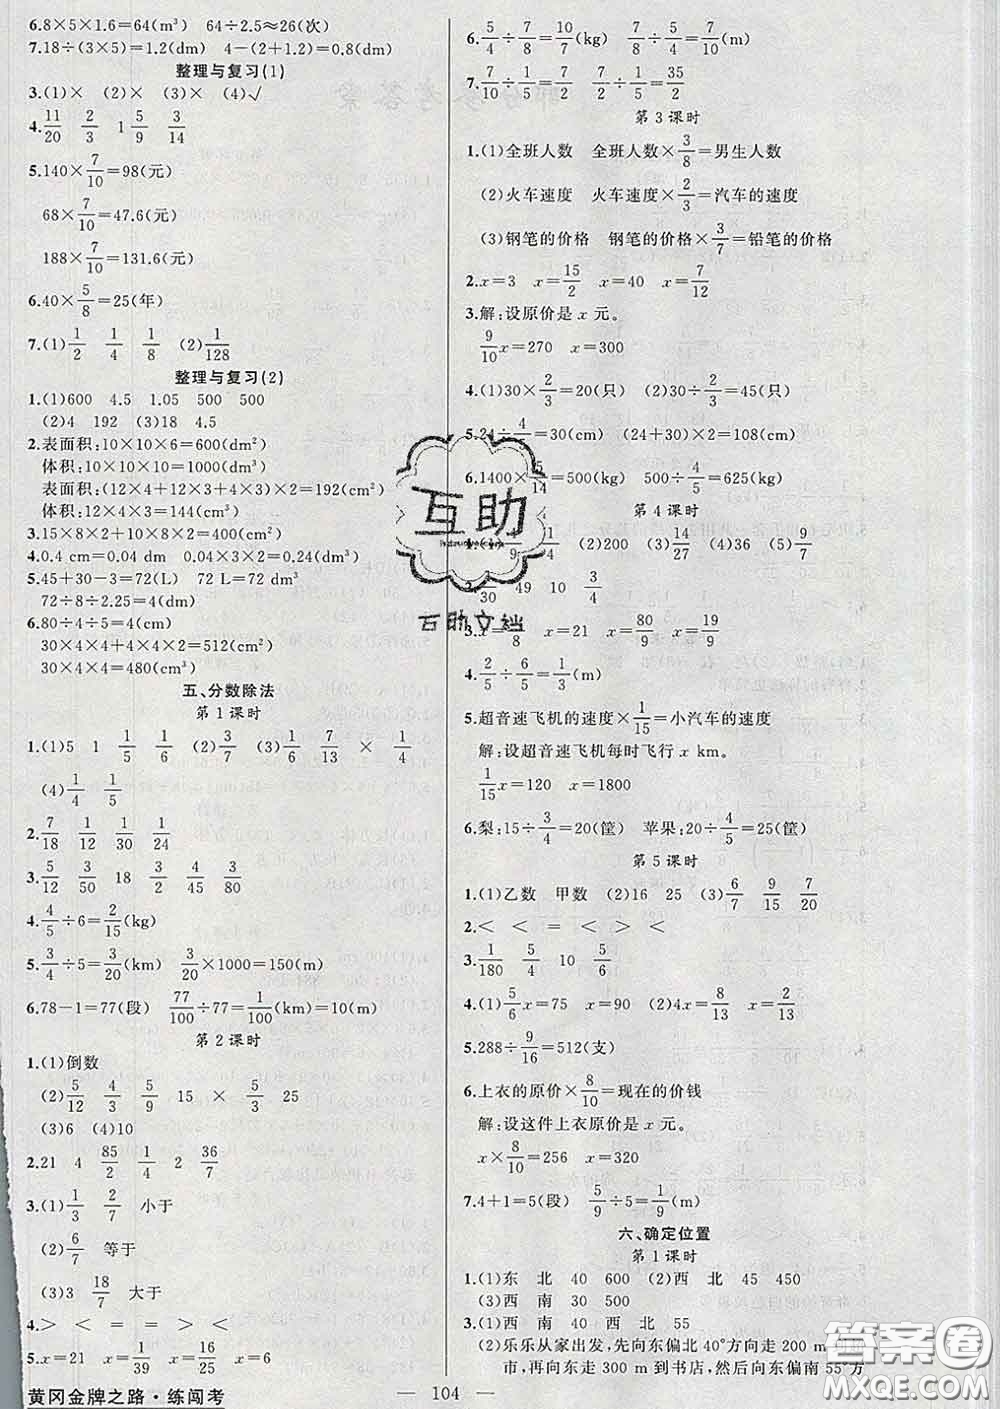 6.8×5×1.6=64(m³) 64÷2.5≈26(次)
7.18÷(3×5)=1.2(dm) 4-(2+1.2)=0.8(dm)
整理与复习(1)
3.(1)× (2)× (3)× (4)√
4.11/20 2/3 1 5/9 3/14
5.140×7/10=98(元)
68×7/10=47.6(元)
188×7/10=131.6(元)
6.40×5/8=25(年)
7.(1)1/2 1/4 1/8 (2)1/128
整理与复习(2)
1.(1)600 4.5 1.05 500 500
(2)4 192 (3)18 4.5
2.表面积:10×10×6=600(dm²)
体积:10×10×10=1000(dm³)
表面积:(12×4+12×3+4×3)×2=192(cm²)
体积:12×4×3=144(cm³)
3.15×8×2+10×8×2=400(cm²)
4.0.4 cm=0.04 dm 0.04×3×2=0.24(dm³)
5.45+30-3=72(L) 72 L=72(dm³)
72÷8÷2.25=4(dm)
6.80÷4÷5=4(cm)
30×4×4+4×4×2=512(cm²)
30×4×4=480(cm³)
五、分数除法
第1课时
1.(1)5 1 1/5 1/6 (2)3/7 (3)1/13 7/13 × 1/4
(4)1/4 1/5
2.7/18 1/12 1/30 1/24
3.5/12 3/50 18 3/4 3/80
4.4/5÷6=2/15(kg)
5.3/4÷5=3/20(km) 3/20×1000=150(m)
6.78-1=77(段) 77/100÷77=1/100(km)=10(m)
第2课时
1.(1)倒数
(2)5/12 4/3 5/9 15 × 3/5 25
(3)6 (4)10
2.21 4 85/2 1/4 2 36/7
3.(1)1/3 2/7 小于
(2)6/7 等于
(3)3 18/7 大于
4.> < = = > <
5.x=21 x=1/39 x=16/25 x=6
黄冈金牌之路·练闯考
6.5/4÷7/8=10/7(kg) 7/8÷5/4=7/10(m)
7.7/10÷1/5 7/10÷1/5=35/2
第3课时
1.(1)全班人数 全班人数×3/8=男生人数
(2)火车速度 火车速度×2/3=汽车的速度
(3)钢笔的价格 钢笔的价格×3/7=铅笔的价格
2.x=3 x=15/2 x=40 x=7/12
3.解:设原价是 x 元。
9/10x=270 x=300
4.(1)30×2/3=20(只) (2)30÷2/3=45(只)
5.24÷4/5=30(cm) (24+30)×2=108(cm)
6.1400×5/14=500(kg) 500÷4/5=625(kg)
第4课时
(2)200 (3)14/27 (4)36 (5)9/7
49 10 3/4
3.x= x=21 x=80/9 x=19/9
4.2/5÷6/5=1/3(m)
5.超音速飞机的速度×1/15=小汽车的速度
解:设超音速飞机每时飞行 x km。
1/15x=120 x=1800
6.梨:15÷3/4=20(筐) 苹果:20÷4/5=25(筐)
第5课时
1.(1)乙数 甲数 (2)16 25 (3)6/7 9/7 7/20
2.< < = > > <
3.1/180 5/4 10 5/6
4.(1)5/6x=75 x=90 (2)4x=8/13 x=2/13
5.288÷9/16=512(支)
6.上衣的原价×8/10=现在的价钱
解:设这件上衣原价是 x 元。
x×8/10=256 x=320
7.4+1=5(段) 5/9÷5=1/9(m)
六、确定位置
第1课时
1.(1)东 北 40 600 (2)西 北 45 450
(3)西 南 30 500
3.(1)西 南 40 西 北 55
(2)乐乐从家出发,先向东偏北 40°方向走 200 m
市,再向东走 300 m到书店,然后向东偏南 55°方
— 104 —
互助
百助文档
答案圈
MXQE.COM